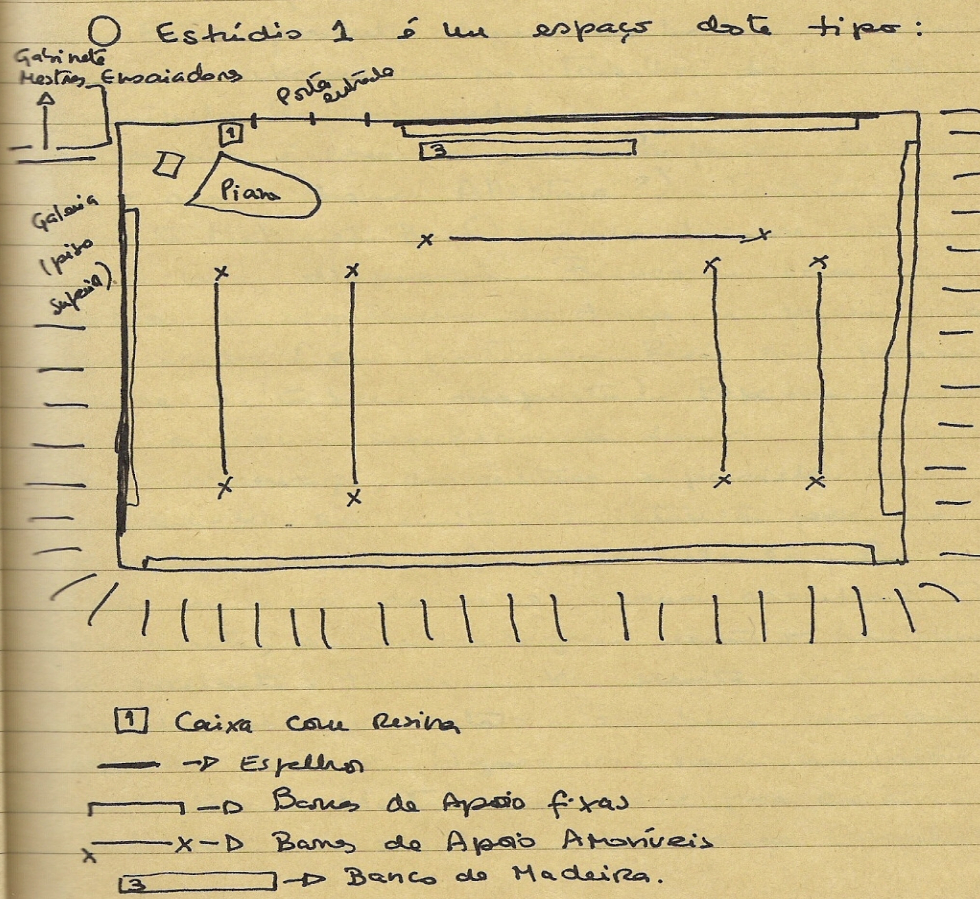 O Estúdio 1 é um espaço deste tipo:
Gabinete
Mestres Ensaiadores
Porta
entrada
1
3
Piano
Galeria
(piso
superior)
1 Caixa com Resina
→ Espelhos
→ Barras de Apoio fixas
x x → Barras de Apoio Amovíveis
3 → Banco de Madeira.